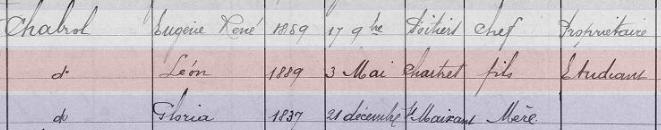 Chabrol Eugène René 1859 17 9bre Poitiers Chef Propriétaire
do Léon 1889 3 Mai Chartret fils Etudiant
do Gloria 1837 21 décembre St Maixant Mère